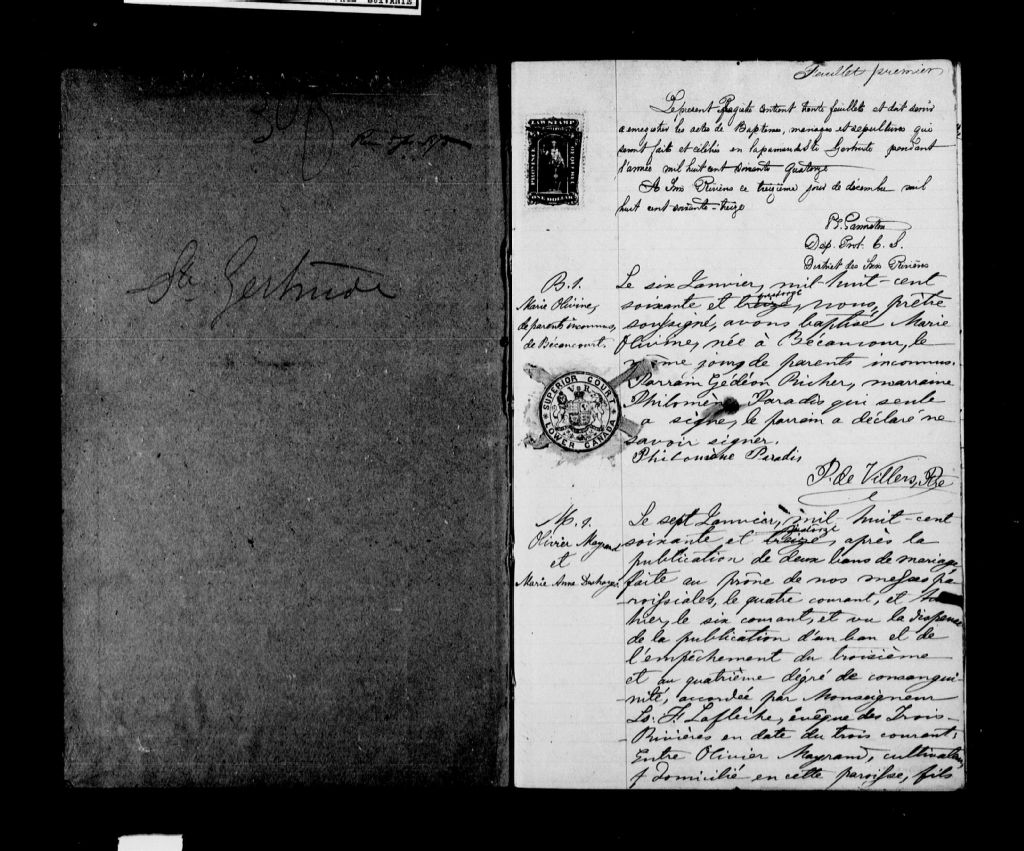 SUIVANTE
Ste Gertrude
Feuillet premier
LAW STAMP
PROVINCE
OF QUEBEC
ONE DOLLAR
Le présent Registre contient trente feuillets et doit servir
à enregistrer les actes de Baptêmes, mariages et sépultures qui
seront faits et célébrés en la paroisse de Ste Gertrude pendant
l'année mil huit cent soixante quatorze
A Trois Rivières ce treizième jour de décembre mil
huit cent soixante-treize
Dép. Prot. C. S.
District des Trois Rivières
B. 1.
Marie Olivine,
de parents inconnus,
de Bécancourt.
Le six Janvier, mil-huit-cent
quatorze
soixante et treize, nous, prêtre
soussigné, avons baptisé Marie
Olivine, née à Bécancour, le
même jour, de parents inconnus.
Parrain Gédéon Richer, marraine
Philomène Paradis qui seule
a signé, le parrain a déclaré ne
savoir signer.
Philomène Paradis
P. de Villers, Ptre
SUPERIOR COURT
V R
LOWER CANADA
M. 1.
Olivier Mayrand
et
Marie Anne Deshayes
Le sept Janvier, mil huit-cent
quatorze
soixante et treize, après la
publication de deux bans de mariage
faite au prône de nos messes pa-
-roissiales, le quatre courant, et
hier, le six courant, et vu la dispense
de la publication d'un ban et de
l'empêchement du troisième
et au quatrième dégré de consangui-
-nité, accordée par Monseigneur
Ls. F. Laflèche, évêque des Trois-
-Rivières en date du trois courant;
Entre Olivier Mayrand, cultivateur,
domicilié en cette paroisse, fils